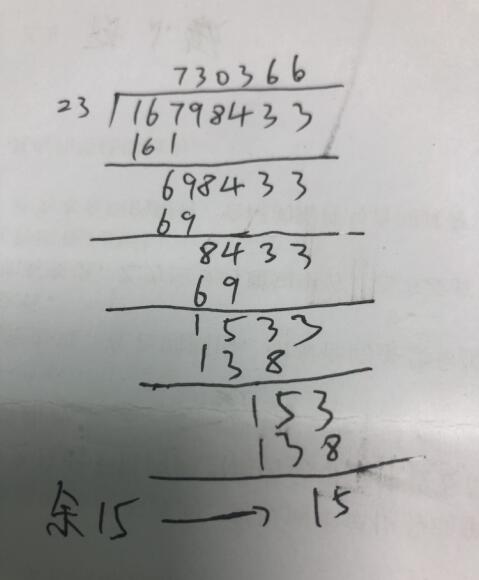 730366
23 16798433
161
698433
69
8433
69
1533
138
153
138
余15 → 15